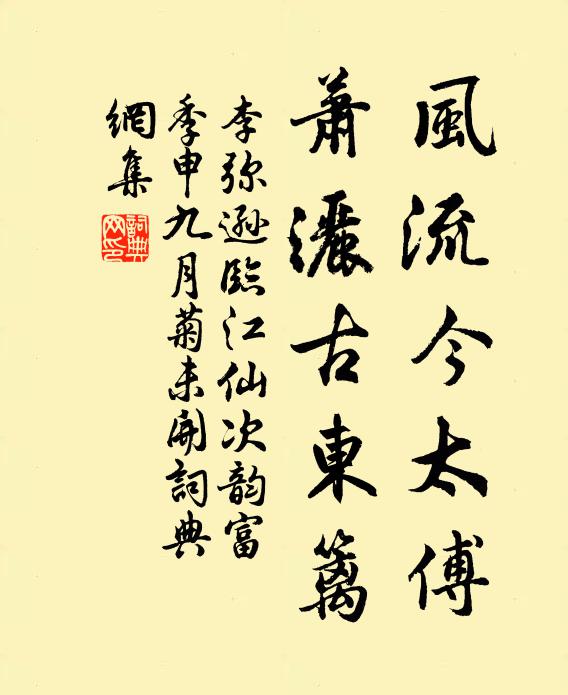 風流今太傅
蕭灑古東籬
李弥遜臨江仙次韵富
季申九月菊未開詞典
網集
詞典網印